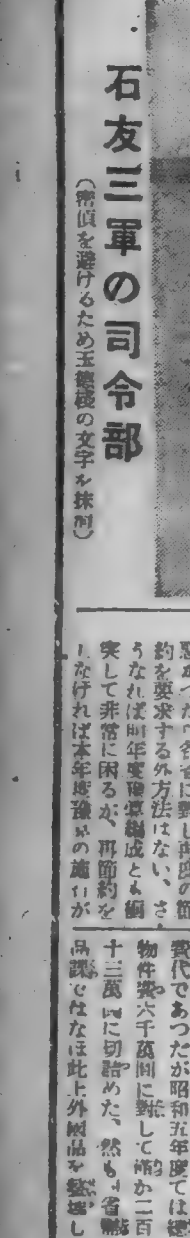 石友三軍の司令部
(密偵を避けるため玉德棧の文字を抹削)
約を要求する外方法はない、さ
うなれば明年度豫算編成とも衝
突して非常に困るが、再節約を
しなければ本年度豫算の施行が
費代であつたが昭和五年度では
物件費六千萬圓に對して僅か二百
十三萬圓に切詰めた、然も
品課ではなほ此上外國品を